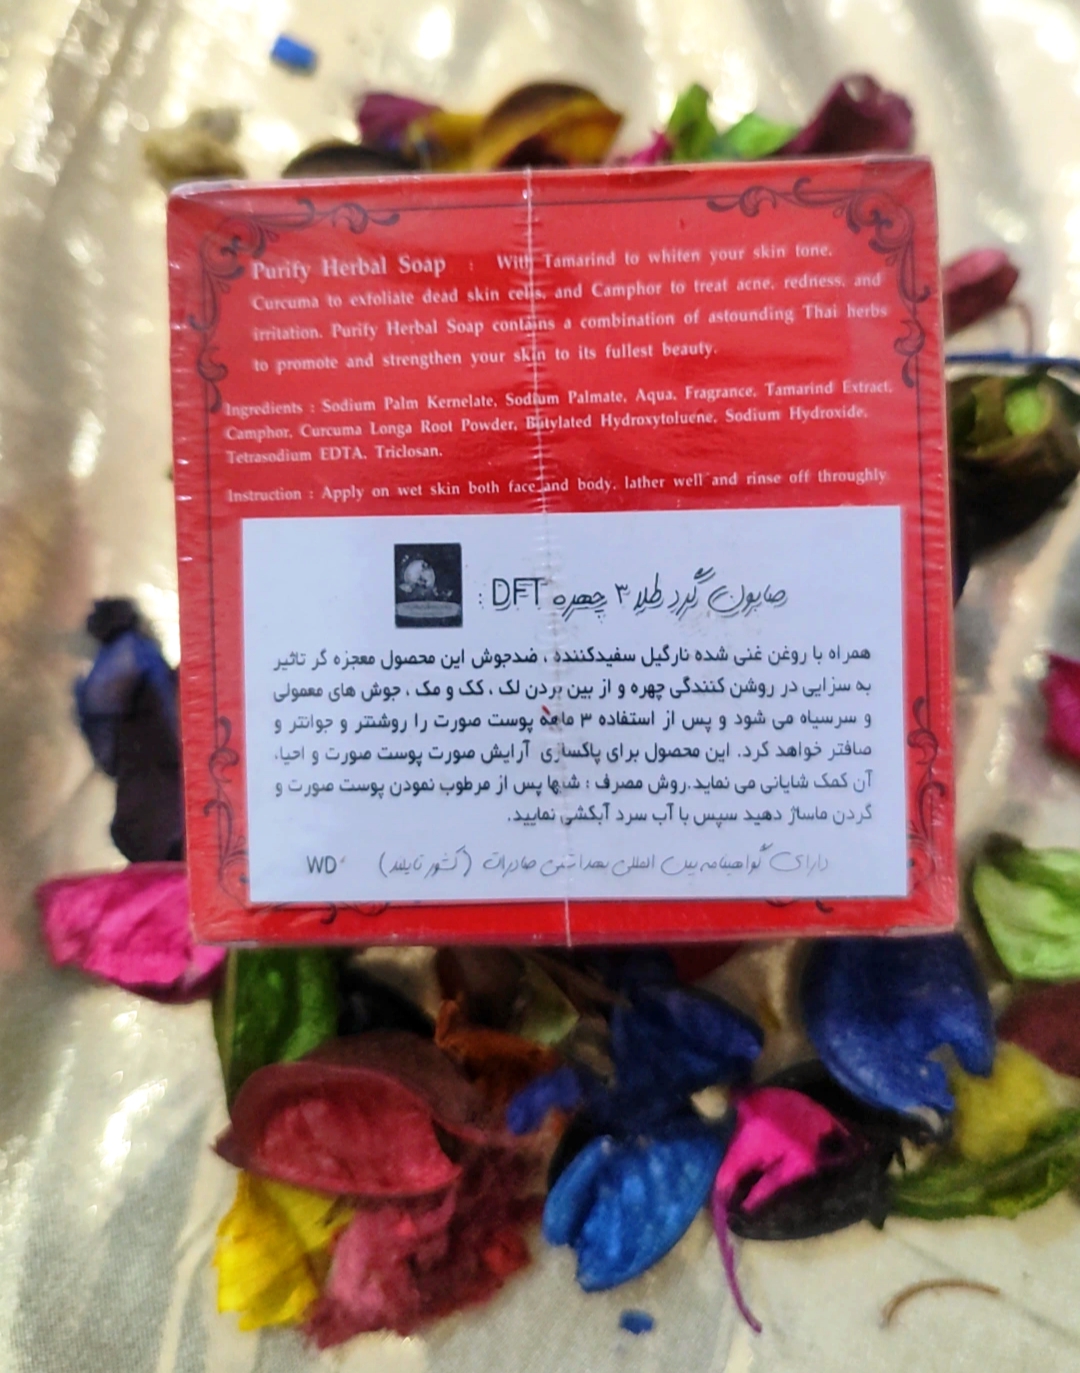 Purify Herbal Soap : With Tamarind to whiten your skin tone.
Curcuma to exfoliate dead skin cells, and Camphor to treat acne, redness, and
irritation. Purify Herbal Soap contains a combination of astounding Thai herbs
to promote and strengthen your skin to its fullest beauty.
Ingredients : Sodium Palm Kernelate, Sodium Palmate, Aqua, Fragrance, Tamarind Extract,
Camphor, Curcuma Longa Root Powder, Butylated Hydroxytoluene, Sodium Hydroxide,
Tetrasodium EDTA, Triclosan.
Instruction : Apply on wet skin both face and body, lather well and rinse off throughly
صابون گرد طلا ۳ چهره DFT :
همراه با روغن غنی شده نارگیل سفیدکننده ، ضدجوش این محصول معجزه گر تاثیر
به سزایی در روشن کنندگی چهره و از بین بردن لک ، کک و مک ، جوش های معمولی
و سرسیاه می شود و پس از استفاده ۳ ماهه پوست صورت را روشنتر و جوانتر و
صافتر خواهد کرد. این محصول برای پاکسازی آرایش صورت پوست صورت و احیا،
آن کمک شایانی می نماید.روش مصرف : شبها پس از مرطوب نمودن پوست صورت و
گردن ماساژ دهید سپس با آب سرد آبکشی نمایید.
دارای گواهینامه بین المللی بهداشتی صادرات (کشور تایلند) WD